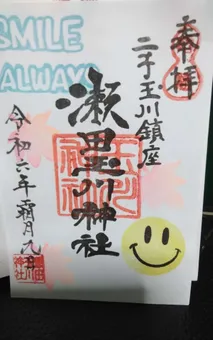 SMILE
ALWAYS
奉拝
二子玉川鎮座
瀬田玉川神社
令和六年霜月九日